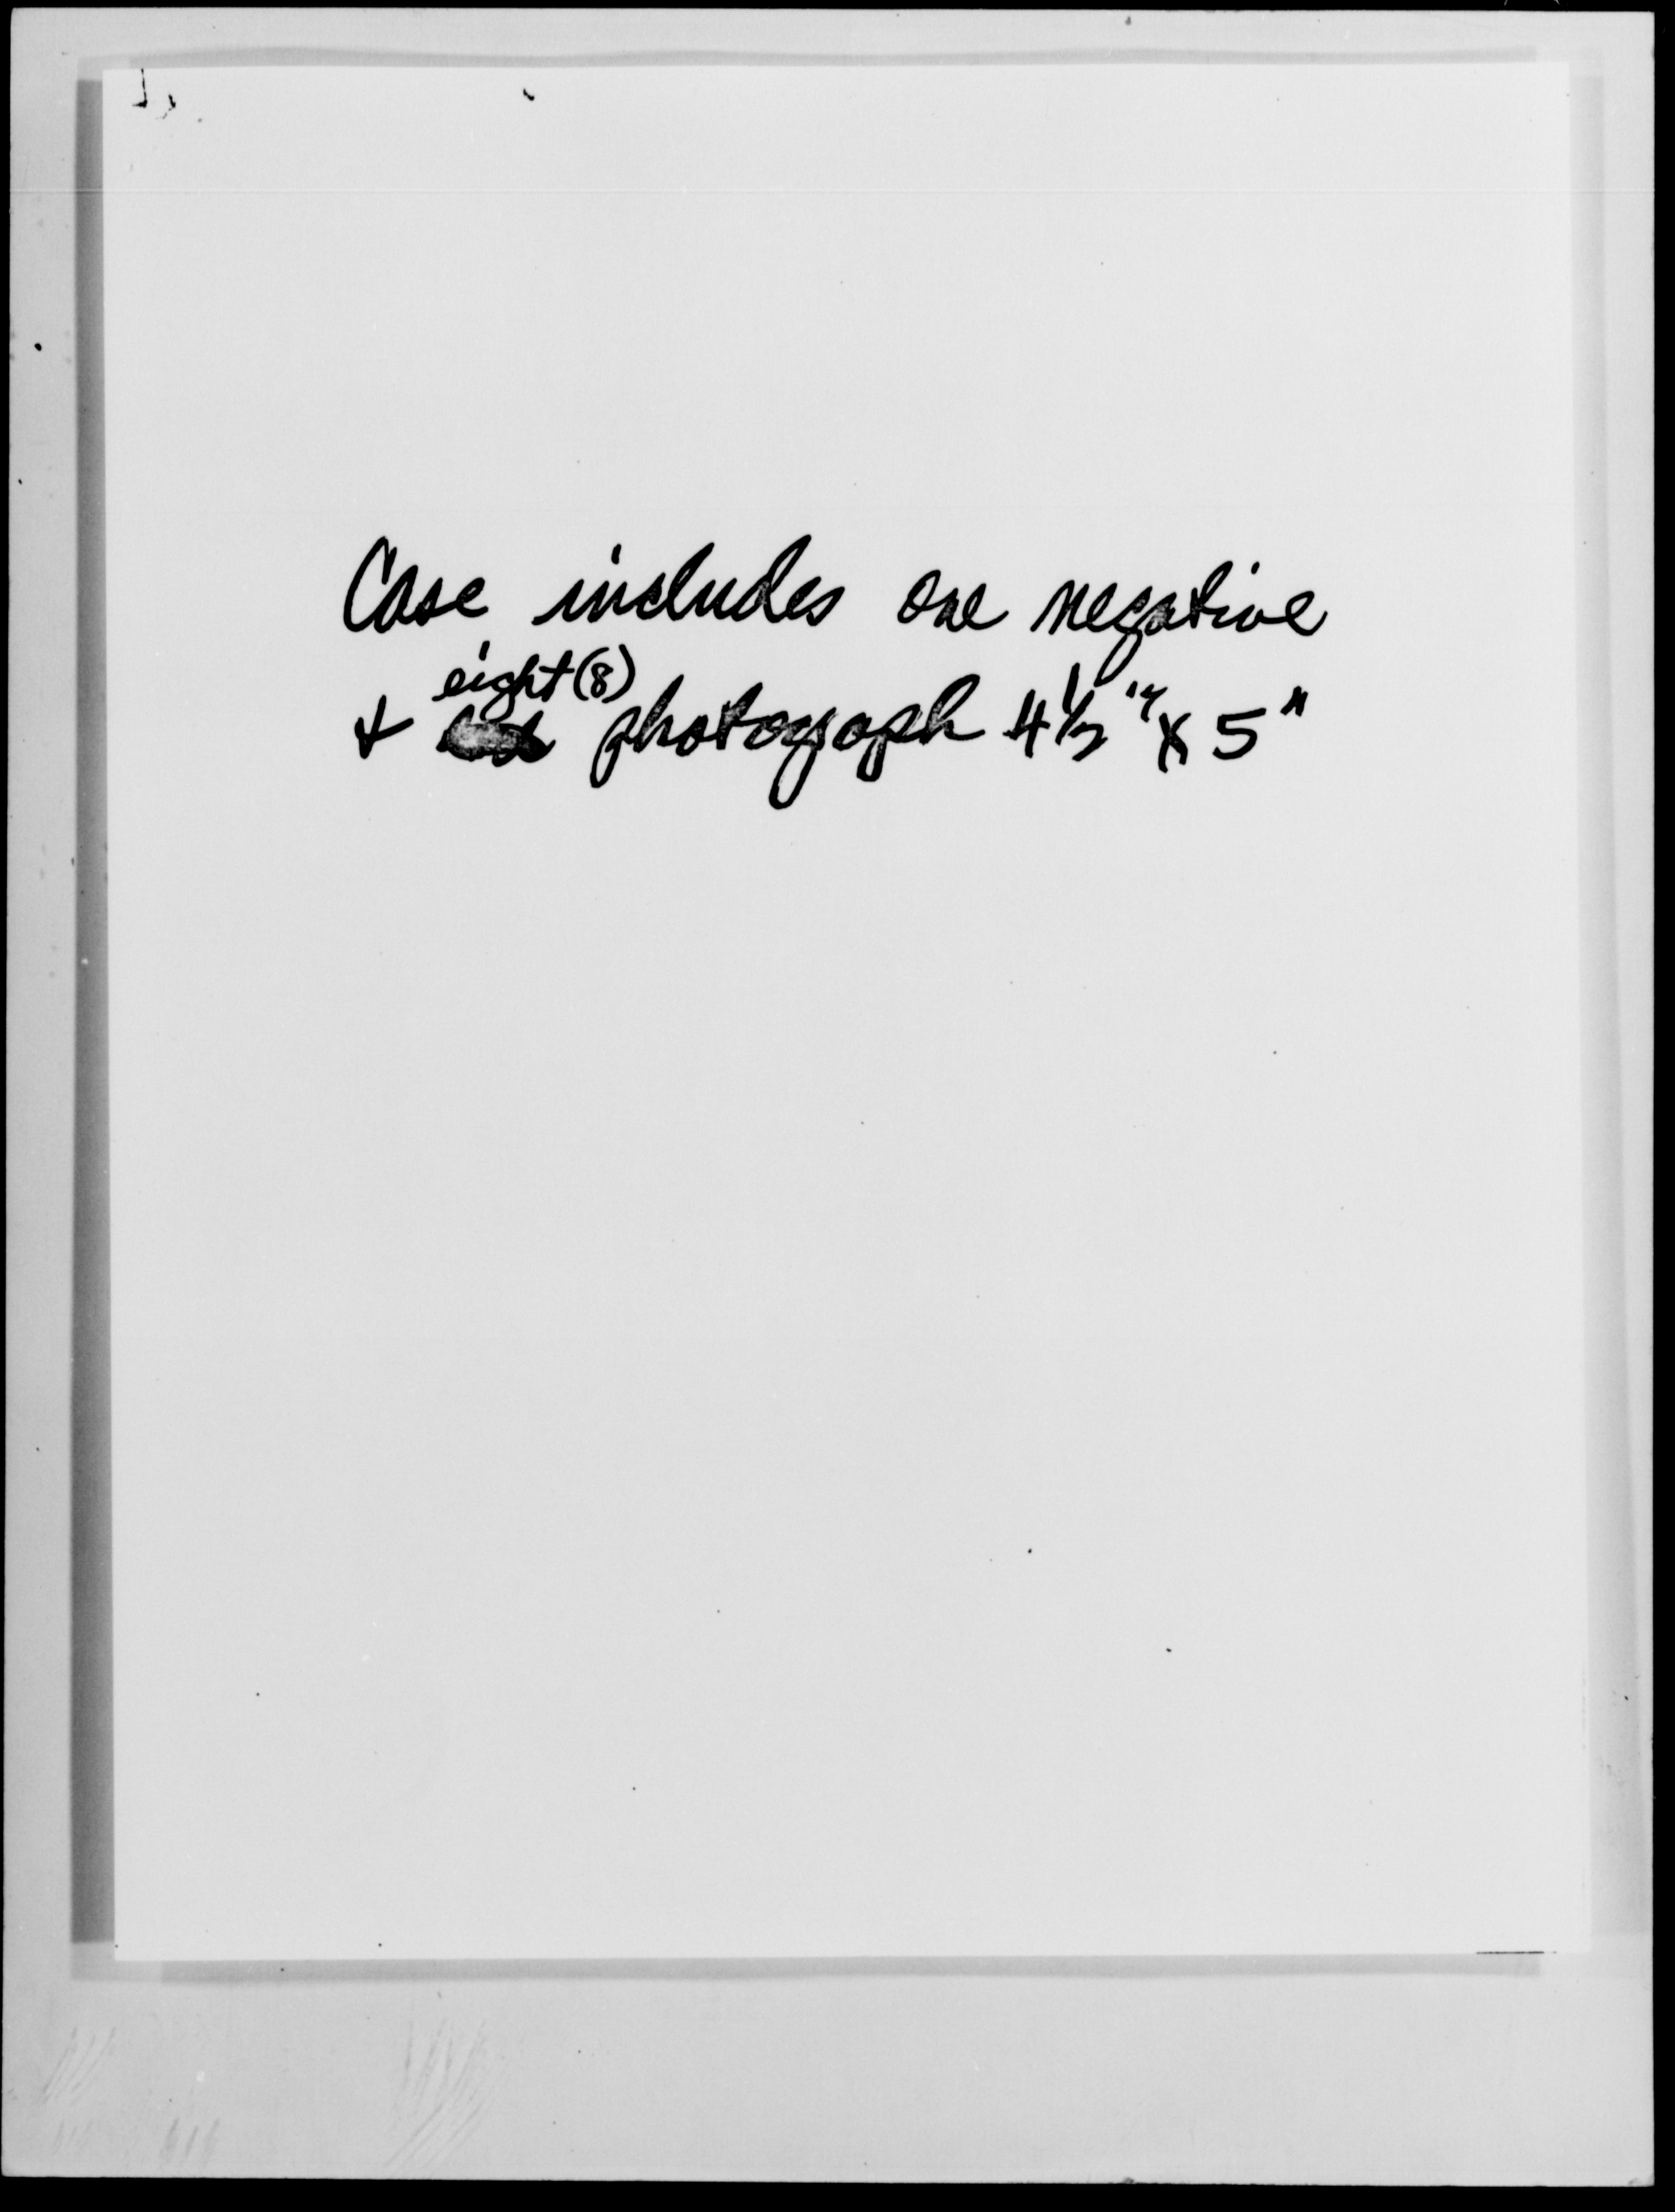 Case includes one negative
eight (8)
& photograph 4 1/2" x 5"